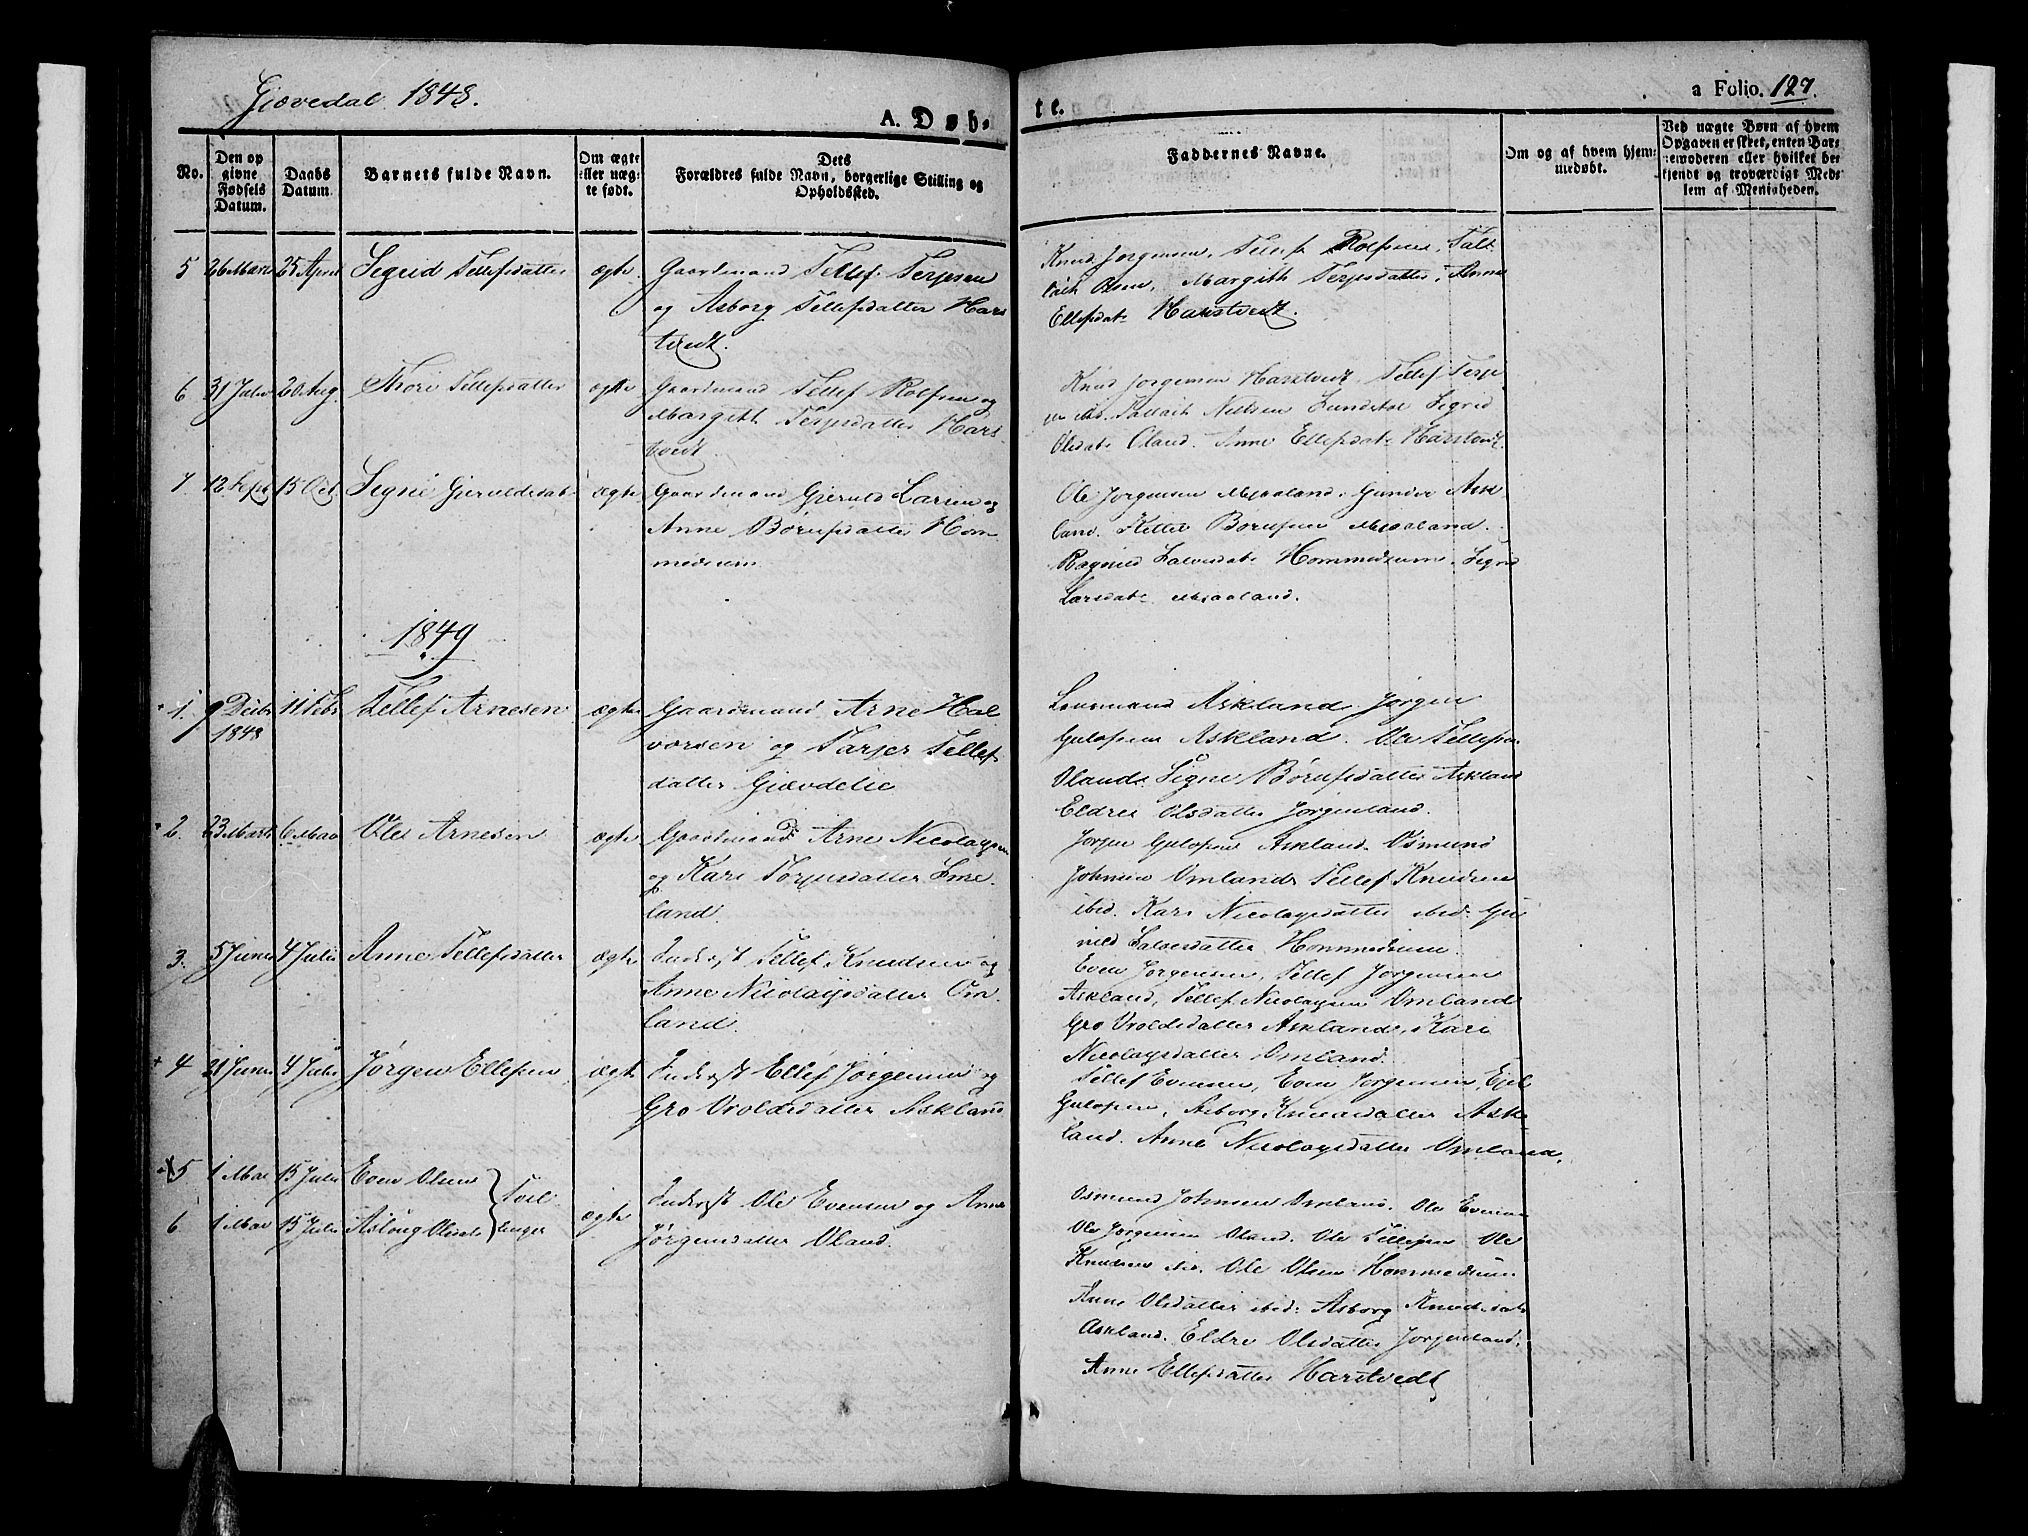 Gjøvedal 1848.
A. Døb-
te.
a Folio. 127.
No.
Den op
givne
Fødsels
Datum.
Daabs
Datum.
Barnets fulde Navn.
Om ægte
eller uæg-
te født.
Dets
Forældres fulde Navn, borgerlige Stilling og
Opholdssted.
Faddernes Navne.
Om og af hvem hjem-
medøbt.
Ved uægte Børn af hvem
Opgaven er skeet, enten Bar-
nemoderen eller hvilket be-
kjendt og troværdigt Med-
lem af Menigheden.
5 26 Marts 25 April Sigrid Tellefsdatter ægte Gaardmand Tellef Terjesen
og Asborg Tellefsdatter Hars
tvedt.
Knud Jørgensen, Tellef Rolfsen, Tal
lach Olsen, Margith Terjesdatter, Anne
Ellefsdat: Harstvedt.
6 31 Juli 20 Aug. Thori Tellefsdatter ægte Gaardmand Tellef Rolfsen og
Margith Terjesdatter Hars
tvedt.
Knud Jørgensen Harstvedt, Tellef Terje
sen ibd. Tallach Nielsen Lundstøl Sigrid
Olsdat: Oland. Anne Ellefsdat: Harstvedt
7. 12 Sept 15 Oct. Signe Gjeruldsdat: ægte Gaardmand Gjeruld Larsen og
Anne Børufsdatter Hom
medsum
Ole Jørgensen Mjaaland. Gunder Ask
land. Kittel Børufsen Mjaaland.
Ragnild Salvesdat: Hommedsum. Sigrid
Larsdat: Mjaaland.
1849
1. 9 Decbr 11 Febr Tellef Arnesen ægte Gaardmand Arne Hal
1848
vorsen og Tarjer Tellef
datter Gjævdelie
Lensmand Askland Jørgen
Gulofsen Askland. Ole Tellefsen
Oland. Signe Børufsdatter Askland
Eldrei Olsdatter Jørgenland.
2. 23 Marts 6 Mai Ole Arnesen ægte Gaardmand Arne Nicolaysen
og Kari Torjusdatter Eme
land.
Jørgen Gulofsen Askland. Osmund
Johnsen Omland Tellef Knudsen
ibid. Kari Nicolaysdatter ibid. Gu
nild Salvesdatter Hommedsum.
3. 5 Juni 4 Juli Anne Tellefsdatter ægte Inderst Tellef Knudsen og
Anne Nicolaysdatter Om
land.
Even Jørgensen, Tellef Jørgensen
Askland, Tellef Nicolaysen Omland
Gro Uroldsdatter Askland, Kari
Nicolaysdatter Omland.
4 21 Juni 4 Juli Jørgen Ellefsen ægte Inderst Ellef Jørgensen og
Gro Uroldsdatter Askland
Tellef Evensen, Even Jørgensen, Ejel
Gulofsen, Asborg Knudsdatter Ask
land. Anne Nicolaysdatter Omland.
5 1 Mai 15 Juli Even Olsen Tvil
6 1 Mai 15 Juli Asloug Olsdat: linger ægte Inderst Ole Evensen og Anne
Jørgensdatter Oland.
Osmund Johnsen Omland. Ole Evensen
Ole Jørgensen Oland. Ole Tellefsen Ole
Knudsen ibid. Ole Olsen Hommedsum
Anne Olsdatter ibid: Asborg Knudsdat:
Askland. Eldre Olsdatter Jørgenland.
Anne Ellefsdatter Harstvedt